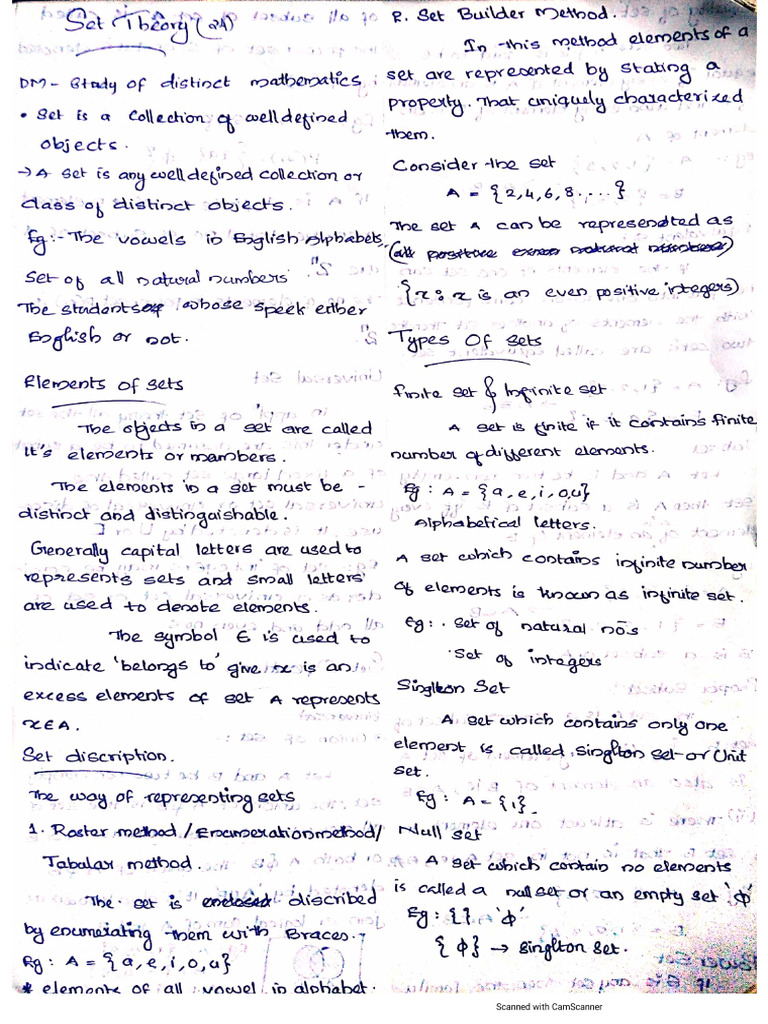 Set Theory (24)
DM - Study of distinct mathematics
• Set is a collection of well defined
objects.
→ A set is any well defined collection or
class of distinct objects.
Eg:- The vowels in English Alphabets.
Set of all natural numbers.
The students whose speek either
English or not.
Elements of sets
The objects in a set are called
it's elements or mambers.
The elements in a set must be -
distinct and distingaishable.
Generally capital letters are used to
represents sets and small letters
are used to denote elements.
The symbol ∈ is used to
indicate 'belongs to' give x is an
excess elements of set A represents
x∈A.
Set discription.
The way of representing sets
1. Roster method / Enumeration method/
Tabalar method.
The set is enclosed discribed
by enumerating them with Braces.
Eg: A = {a, e, i, o, u}
* elements of all vowel in alphabet.
2. Set Builder Method.
In this method elements of a
set are represented by stating a
property. That uniquely characterized
them.
Consider the set
A = {2,4,6,8....}
The set A can be represented as
(all positive even natural numbers)
{x: x is an even positive integers)
Types Of Sets
finite set & Infinite set
A set is finite if it contains finite
number of different elements.
Eg: A = {a, e, i, o, u}
Alphabetical letters.
A set which contains infinite number
of elements is known as infinite set.
Eg: . Set of natural nos
Set of integers
Singlton Set
A set which contains only one
element is called singlton set or Unit
set.
Eg: A = {1}.
'Null' set
A set which contain no elements
is called a null set or an empty set 'ϕ'
Eg: {} 'ϕ'
{ϕ} → Singlton set.
Scanned with CamScanner